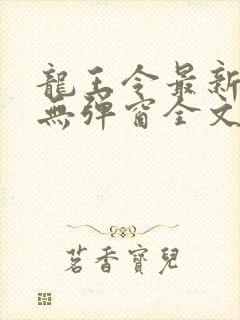 龍王令最新
無彈窗全文
茗香寶兒